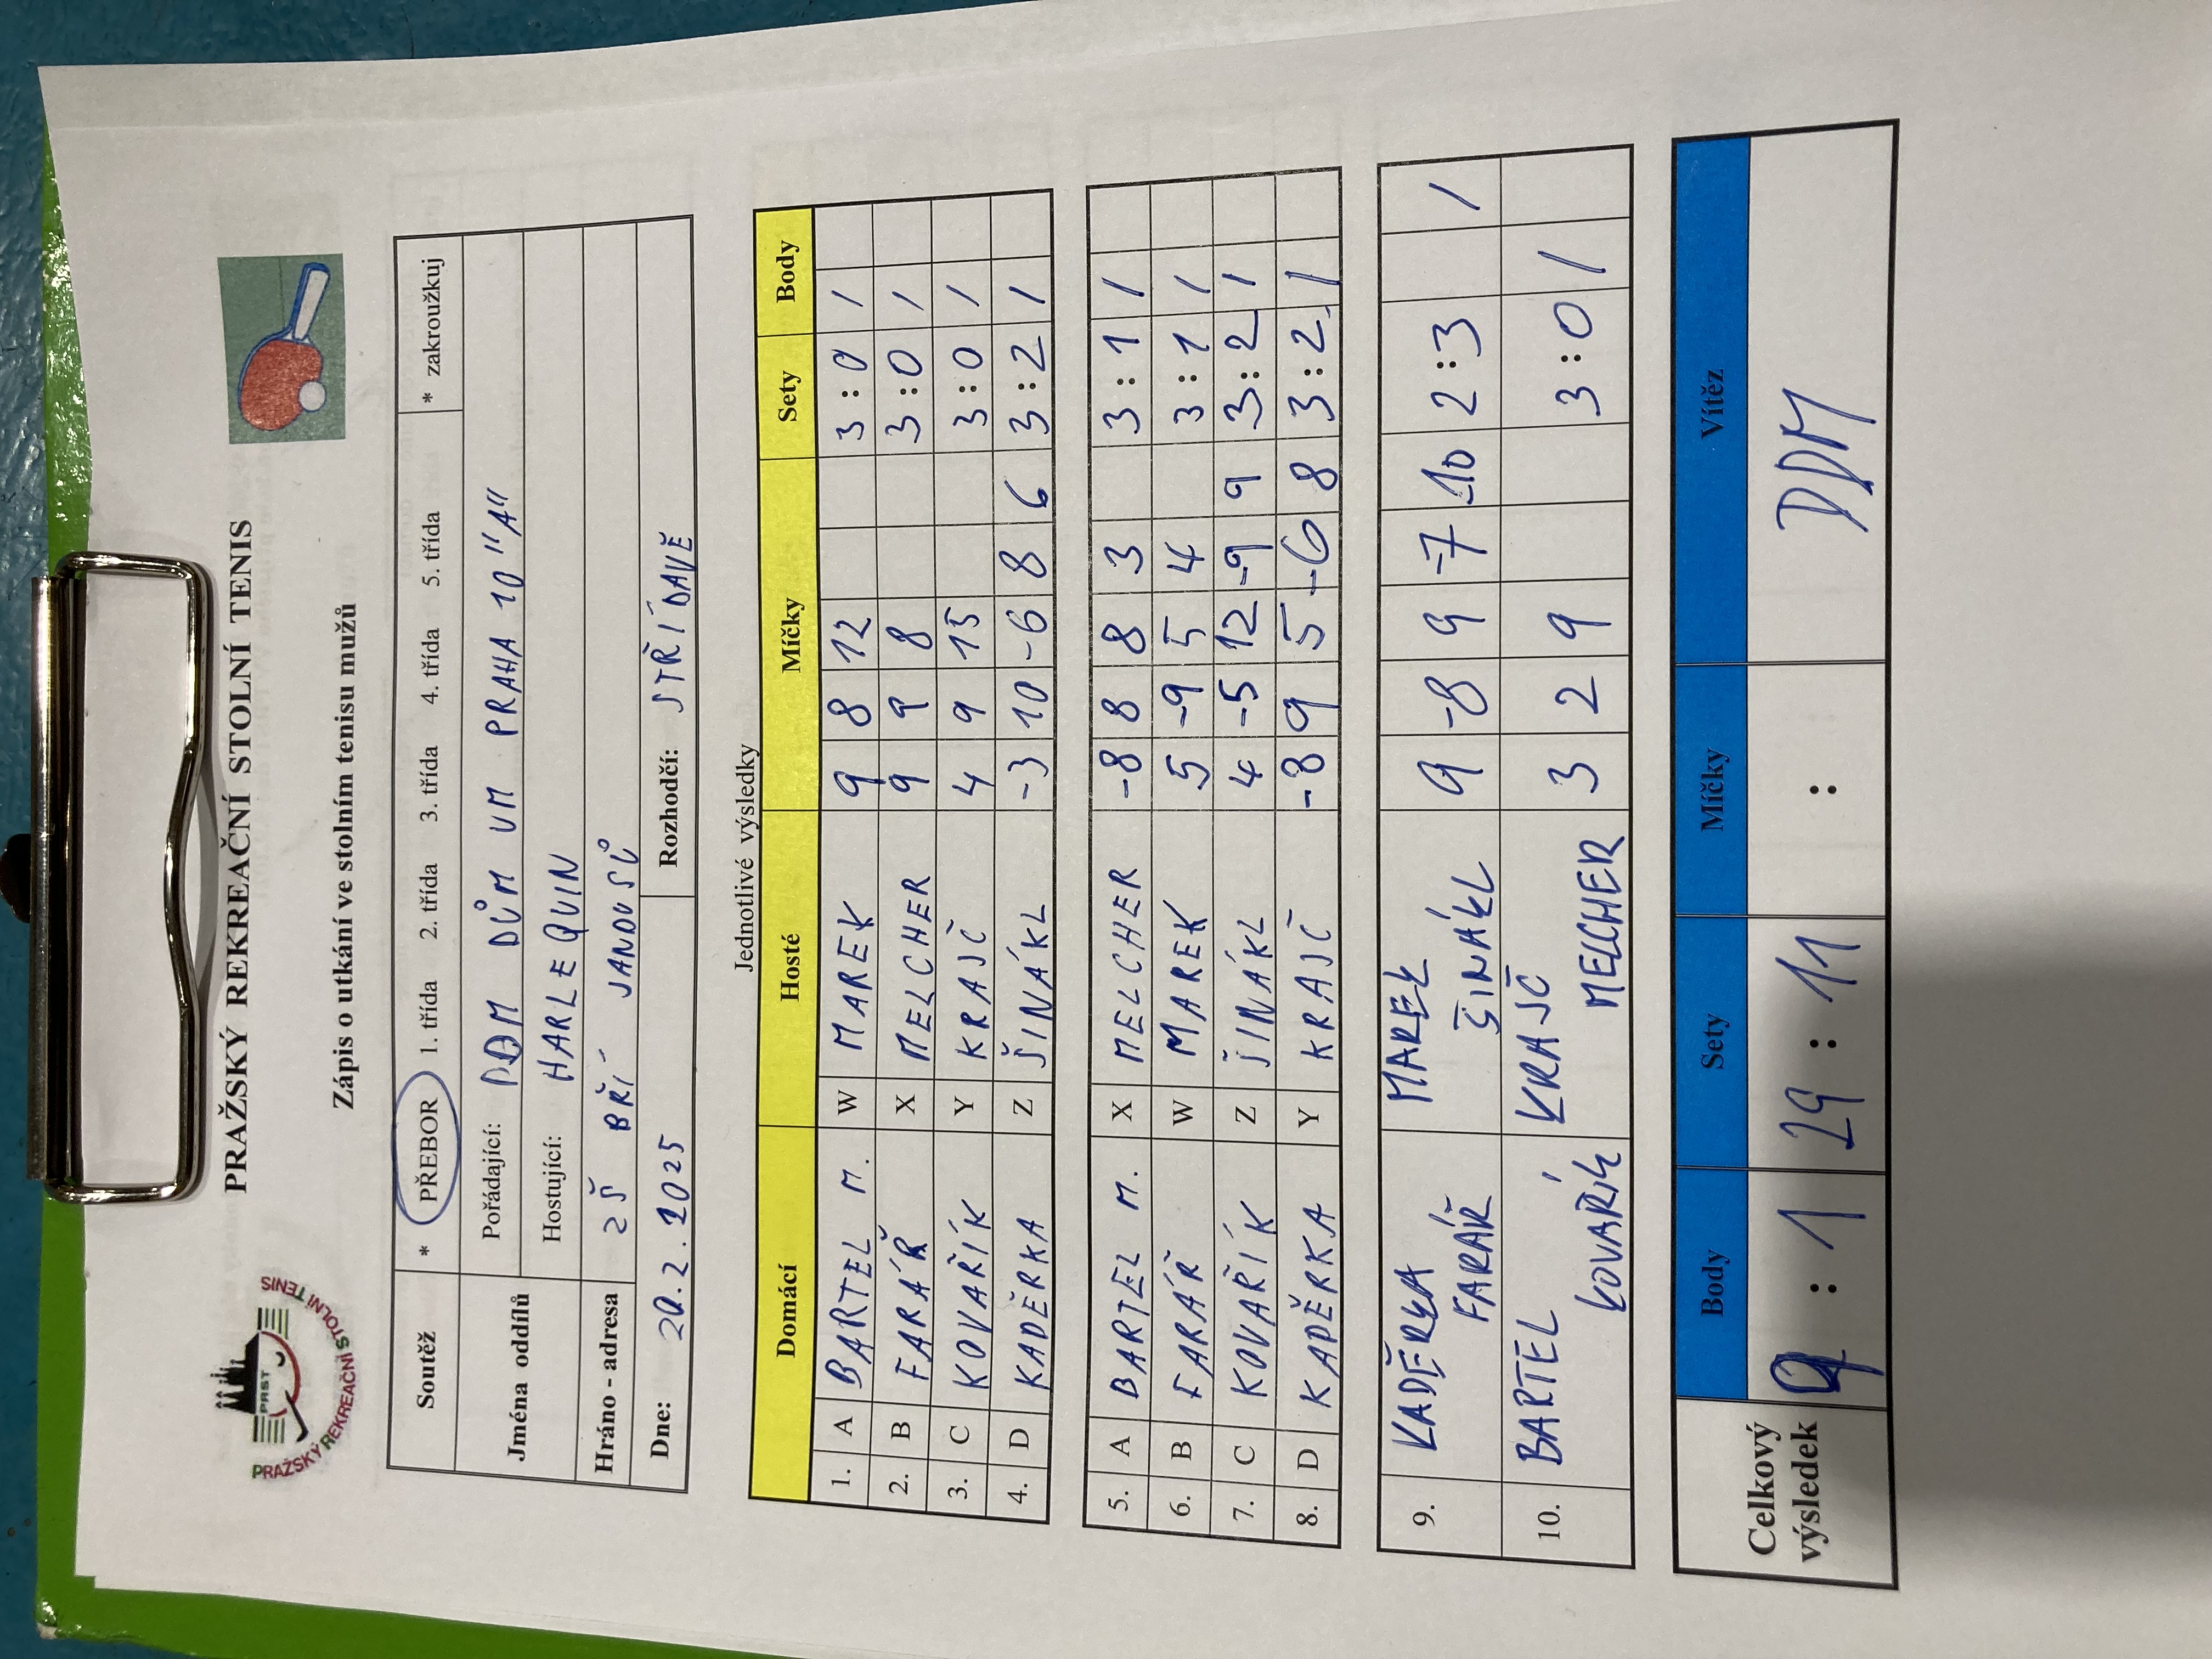 PRAŽSKÝ REKREAČNÍ STOLNÍ TENIS
PRST
PRAŽSKÝ REKREAČNÍ STOLNI TENIS
Zápis o utkání ve stolním tenisu mužů
Soutěž * PŘEBOR 1. třída 2. třída 3. třída 4. třída 5. třída * zakroužkuj
Jména oddílů Pořádající: DDM DŮM UM PRAHA 10 "A"
Hostující: HARLEQUIN
Hráno - adresa ZŠ BŘÍ JANDUSŮ
Dne: 20.2.2025 Rozhodčí: STŘÍDAVĚ
Jednotlivé výsledky
Domácí Hosté Míčky Sety Body
1. A BARTEL M. W MAREK 9 8 12 3:0 1
2. B FARÁŘ X MELCHER 9 9 8 3:0 1
3. C KOVAŘÍK Y KRAJČ 4 9 15 3:0 1
4. D KADĚRKA Z ŠINÁKL -3 10 -6 8 6 3:2 1
5. A BARTEL M. X MELCHER -8 8 8 3 3:1 1
6. B FARÁŘ W MAREK 5 -9 5 4 3:1 1
7. C KOVAŘÍK Z ŠINÁKL 4 -5 12 -9 9 3:2 1
8. D KADĚRKA Y KRAJČ -8 9 5 -6 8 3:2 1
9. KADĚRKA MAREK 9 -8 9 -7 -10 2:3 1
FARÁŘ ŠINÁKL
10. BARTEL KRAJČ 3 2 9 3:0 1
KOVAŘÍK MELCHER
Celkový výsledek Body Sety Míčky Vítěz
9 : 1 29 : 11 : DDM